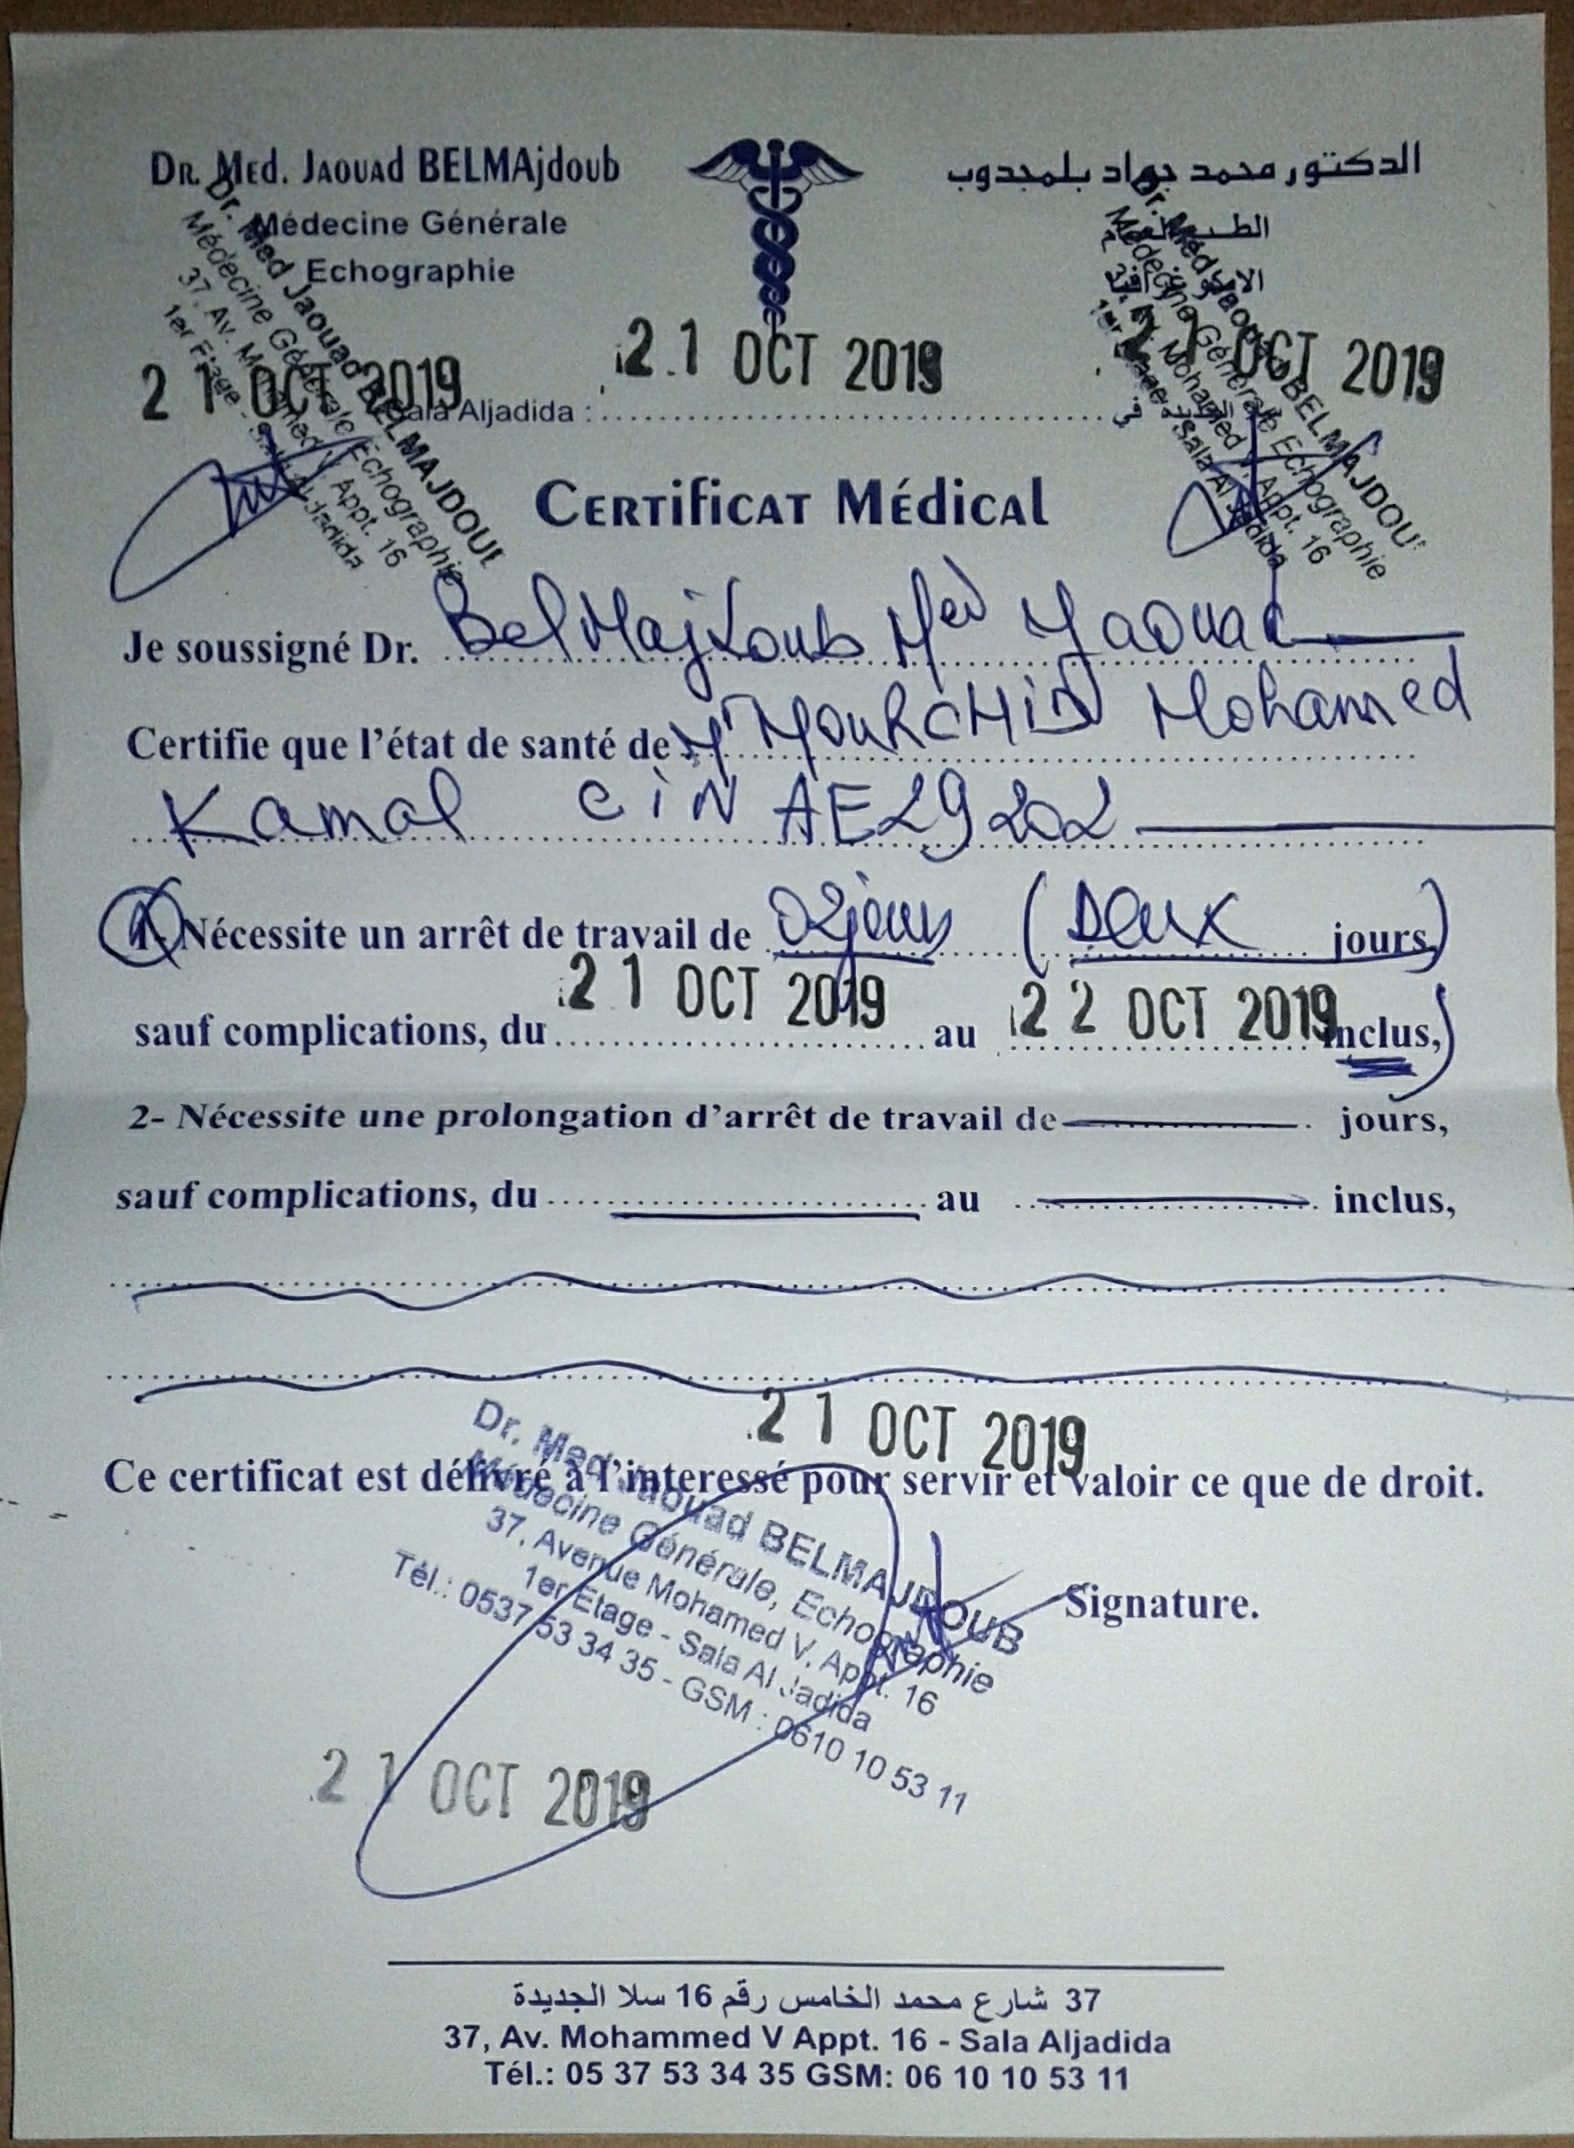 Dr. Med. Jaouad BELMAjdoub
الدكتور محمد جواد بلمجدوب
Médecine Générale
الطب العام
Echographie
Dr. Med Jaouad BELMAJDOUB
Médecine Générale Echographie
37, Av. Mohamed V, Appt. 16
1er Etage - Sala Al Jadida
Dr. Med Jaouad BELMAJDOU
Médecine Générale Echographie
Mohamed V, Appt. 16
Sala Al Jadida
21 OCT 2019
21 OCT 2019
21 OCT 2019
Sala Aljadida : في
Certificat Médical
Je soussigné Dr. BelMajdoub Med Jaouad
Certifie que l'état de santé de Mr MOURCHID Mohamed
Kamal CIN AE29202
1- Nécessite un arrêt de travail de 02 jours (Deux jours,)
sauf complications, du 21 OCT 2019 au 22 OCT 2019 inclus,)
2- Nécessite une prolongation d'arrêt de travail de jours,
sauf complications, du au inclus,
21 OCT 2019
Ce certificat est délivré à l'interessé pour servir et valoir ce que de droit.
Dr. Med Jaouad BELMAJDOUB
Médecine Générale, Echographie
37, Avenue Mohamed V, Appt. 16
1er Etage - Sala Al Jadida
Tél.: 0537 53 34 35 - GSM : 0610 10 53 11
Signature.
21 OCT 2019
37 شارع محمد الخامس رقم 16 سلا الجديدة
37, Av. Mohammed V Appt. 16 - Sala Aljadida
Tél.: 05 37 53 34 35 GSM: 06 10 10 53 11